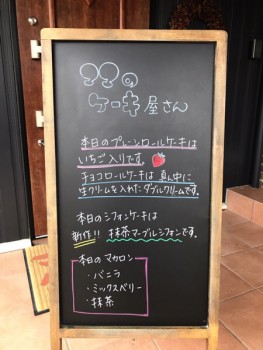 ケーキ屋さん
本日のプレーンロールケーキは
いちご入りです。
チョコロールケーキは真ん中に
生クリームを入れたダブルクリームです。
本日のシフォンケーキは
新作!! 抹茶マーブルシフォンです。
本日のマカロン
・バニラ
・ミックスベリー
・抹茶